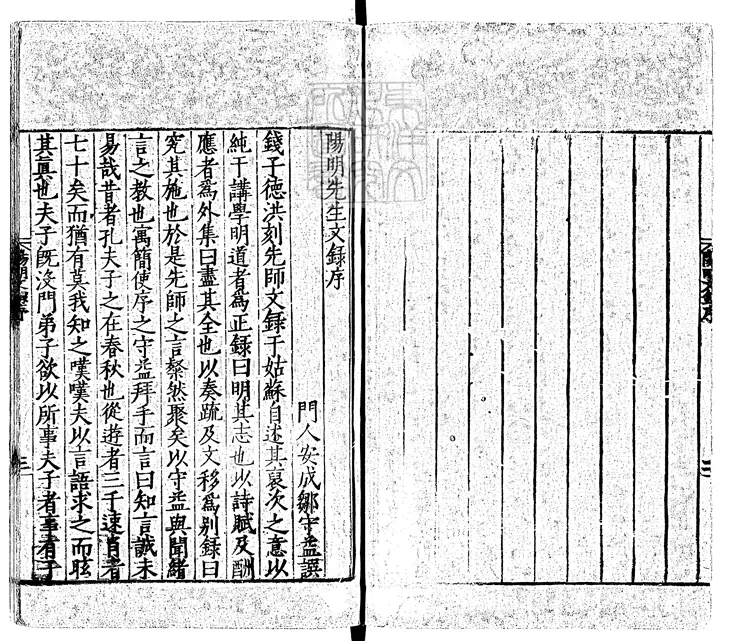 陽明先生文録序
門人安成鄒守益譔
錢子德洪刻先師文録于姑蘇自述其裒次之意以
純于講學明道者爲正録曰明其志也以詩賦及酬
應者爲外集曰盡其全也以奏疏及文移爲别録曰
究其施也於是先師之言粲然聚矣以守益與聞緒
言之教也寓簡使序之守益拜手而言曰知言誠未
易哉昔者孔夫子之在春秋也從逰者三千速肖者
七十矣而猶有莫我知之嘆嘆夫以言語求之而眩
其眞也夫子旣没門弟子欲以所事夫子者事者子
三
三